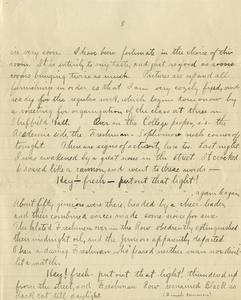 8
in very soon. I have been fortunate in the choice of this
room. It is entirely to my taste, and just as good as some
rooms bringing twice as much. Pictures are up and all
furnishings in order, so that I am very cozily fixed, and
ready for the regular work, which begins tomorrow by
a meeting for organization of the class at three in
Sheffield Hall. Over in the College proper, i.e. the
Academic side, the Freshman-Sophomore rush comes off
tonight. There are signs of activity now too. Last night
I was awakened by a great noise in the street. It cracked
& roared like a cannon, and went to these words —
Hey — fresh — put out that light!
again & again
About fifty juniors were there, headed by a cheer leader,
and their combined voices made some noise for sure.
The belated Freshman over in the Row obediently extinguished
their midnight oil, and the juniors apparently departed
when a daring Freshman, who feared neither man nor devil
lit a match.
Hey! fresh put out that light! thundered up
from the street, and Freshman Row remained black as
black cat till daylight.